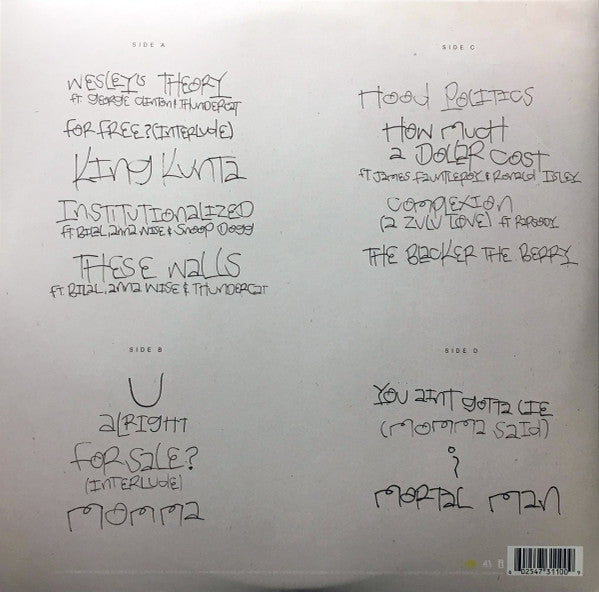 SIDE A
WESLEY'S THEORY
ft. GEORGE CLINTON & THUNDERCAT
FOR FREE? (INTERLUDE)
KING KUNTA
INSTITUTIONALIZED
ft BILAL, anna WISE & SNOOP DOGG
THESE WALLS
ft. BILAL, anna WISE & THUNDERCAT
SIDE B
U
aLRIGHT
FOR SALE?
(INTERLUDE)
MOMMA
SIDE C
HOOD POLITICS
HOW MUCH
a DOLLAR COST
ft JAMES FAUNTLEROY & RONALD ISLEY
COMPLEXION
(a ZULU LOVE) ft RAPSODY
THE BLACKER THE BERRY
SIDE D
YOU aINT GOTTA LIE
(MOMMA SAID)
i
MORTAL MAN
6 02547 31100 9